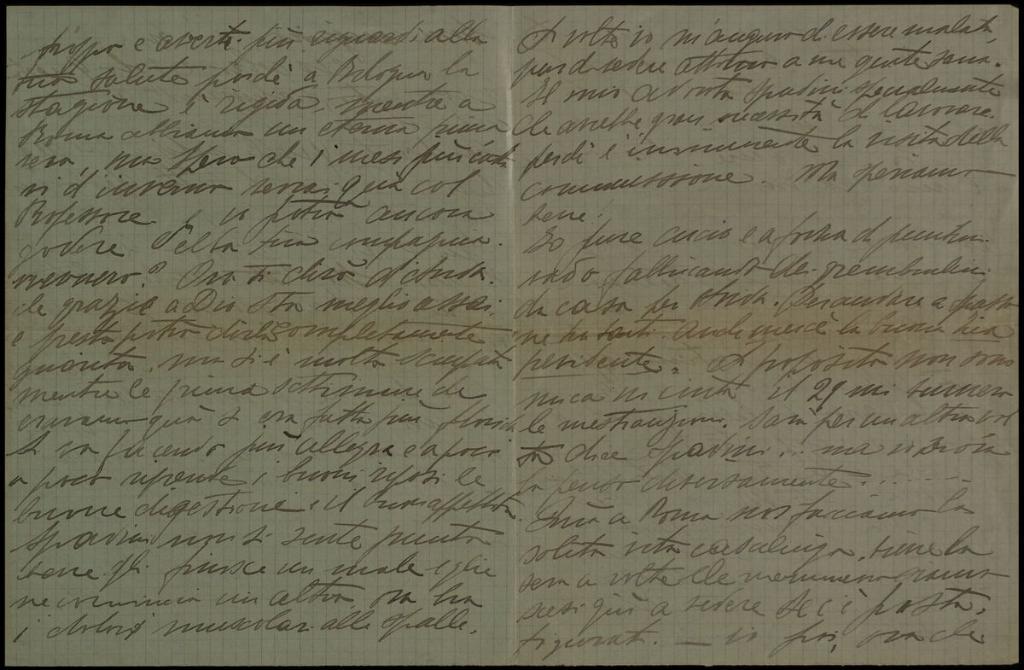 troppo e averti più riguardi alla
tua salute perdè a Bologna la
stagione è rigida, mentre a
Roma abbiamo un eterna prima
vera, ma spero che i mesi più
d'inverno verrai quà col
Professore e io potrò ancora
godere della tua compagnia.
nevvero? Ora ti dirò d'Anda.
che grazie a Dio sta meglio assai,
e presto potrò dirla completamente
guarita, ma si è molto sciupata
mentre le prime settimane che
eravamo quà s'era fatta più florida
Si va facendo più allegra e a poco
a poco riprende i buoni riposi le
buone digestioni e il buon appetito.
Spadini non si sente punto
bene gli finisce un male e gliene
ne ricomincia un altro, ora ha
i dolori muscolari alle spalle.
A volte io m'auguro d'essere malata,
pur di vedere attorno a me gente sana.
Il mio adorato Spadini specialmente
che avrebbe gran necessità di lavorare
perdè è imminente la visita della
commissione. Ma speriamo
bene.
Io pure cucio e a forza di
vado fabbricando dei grembiulini
da casa per Anda. Da andare a spasso
ne ha tanti anche mercè la buona
. A proposito non sono
mica incinta il 29 mi tornarono
le mestruazioni. Sarà per un altra vol
ta dice Spadini... ma
la penso diversamente.......
Quà a Roma noi facciamo la
solita vita casalinga,
sera a volte che
 quà a sedere se c'è posto,
figurati. — io poi, ora che